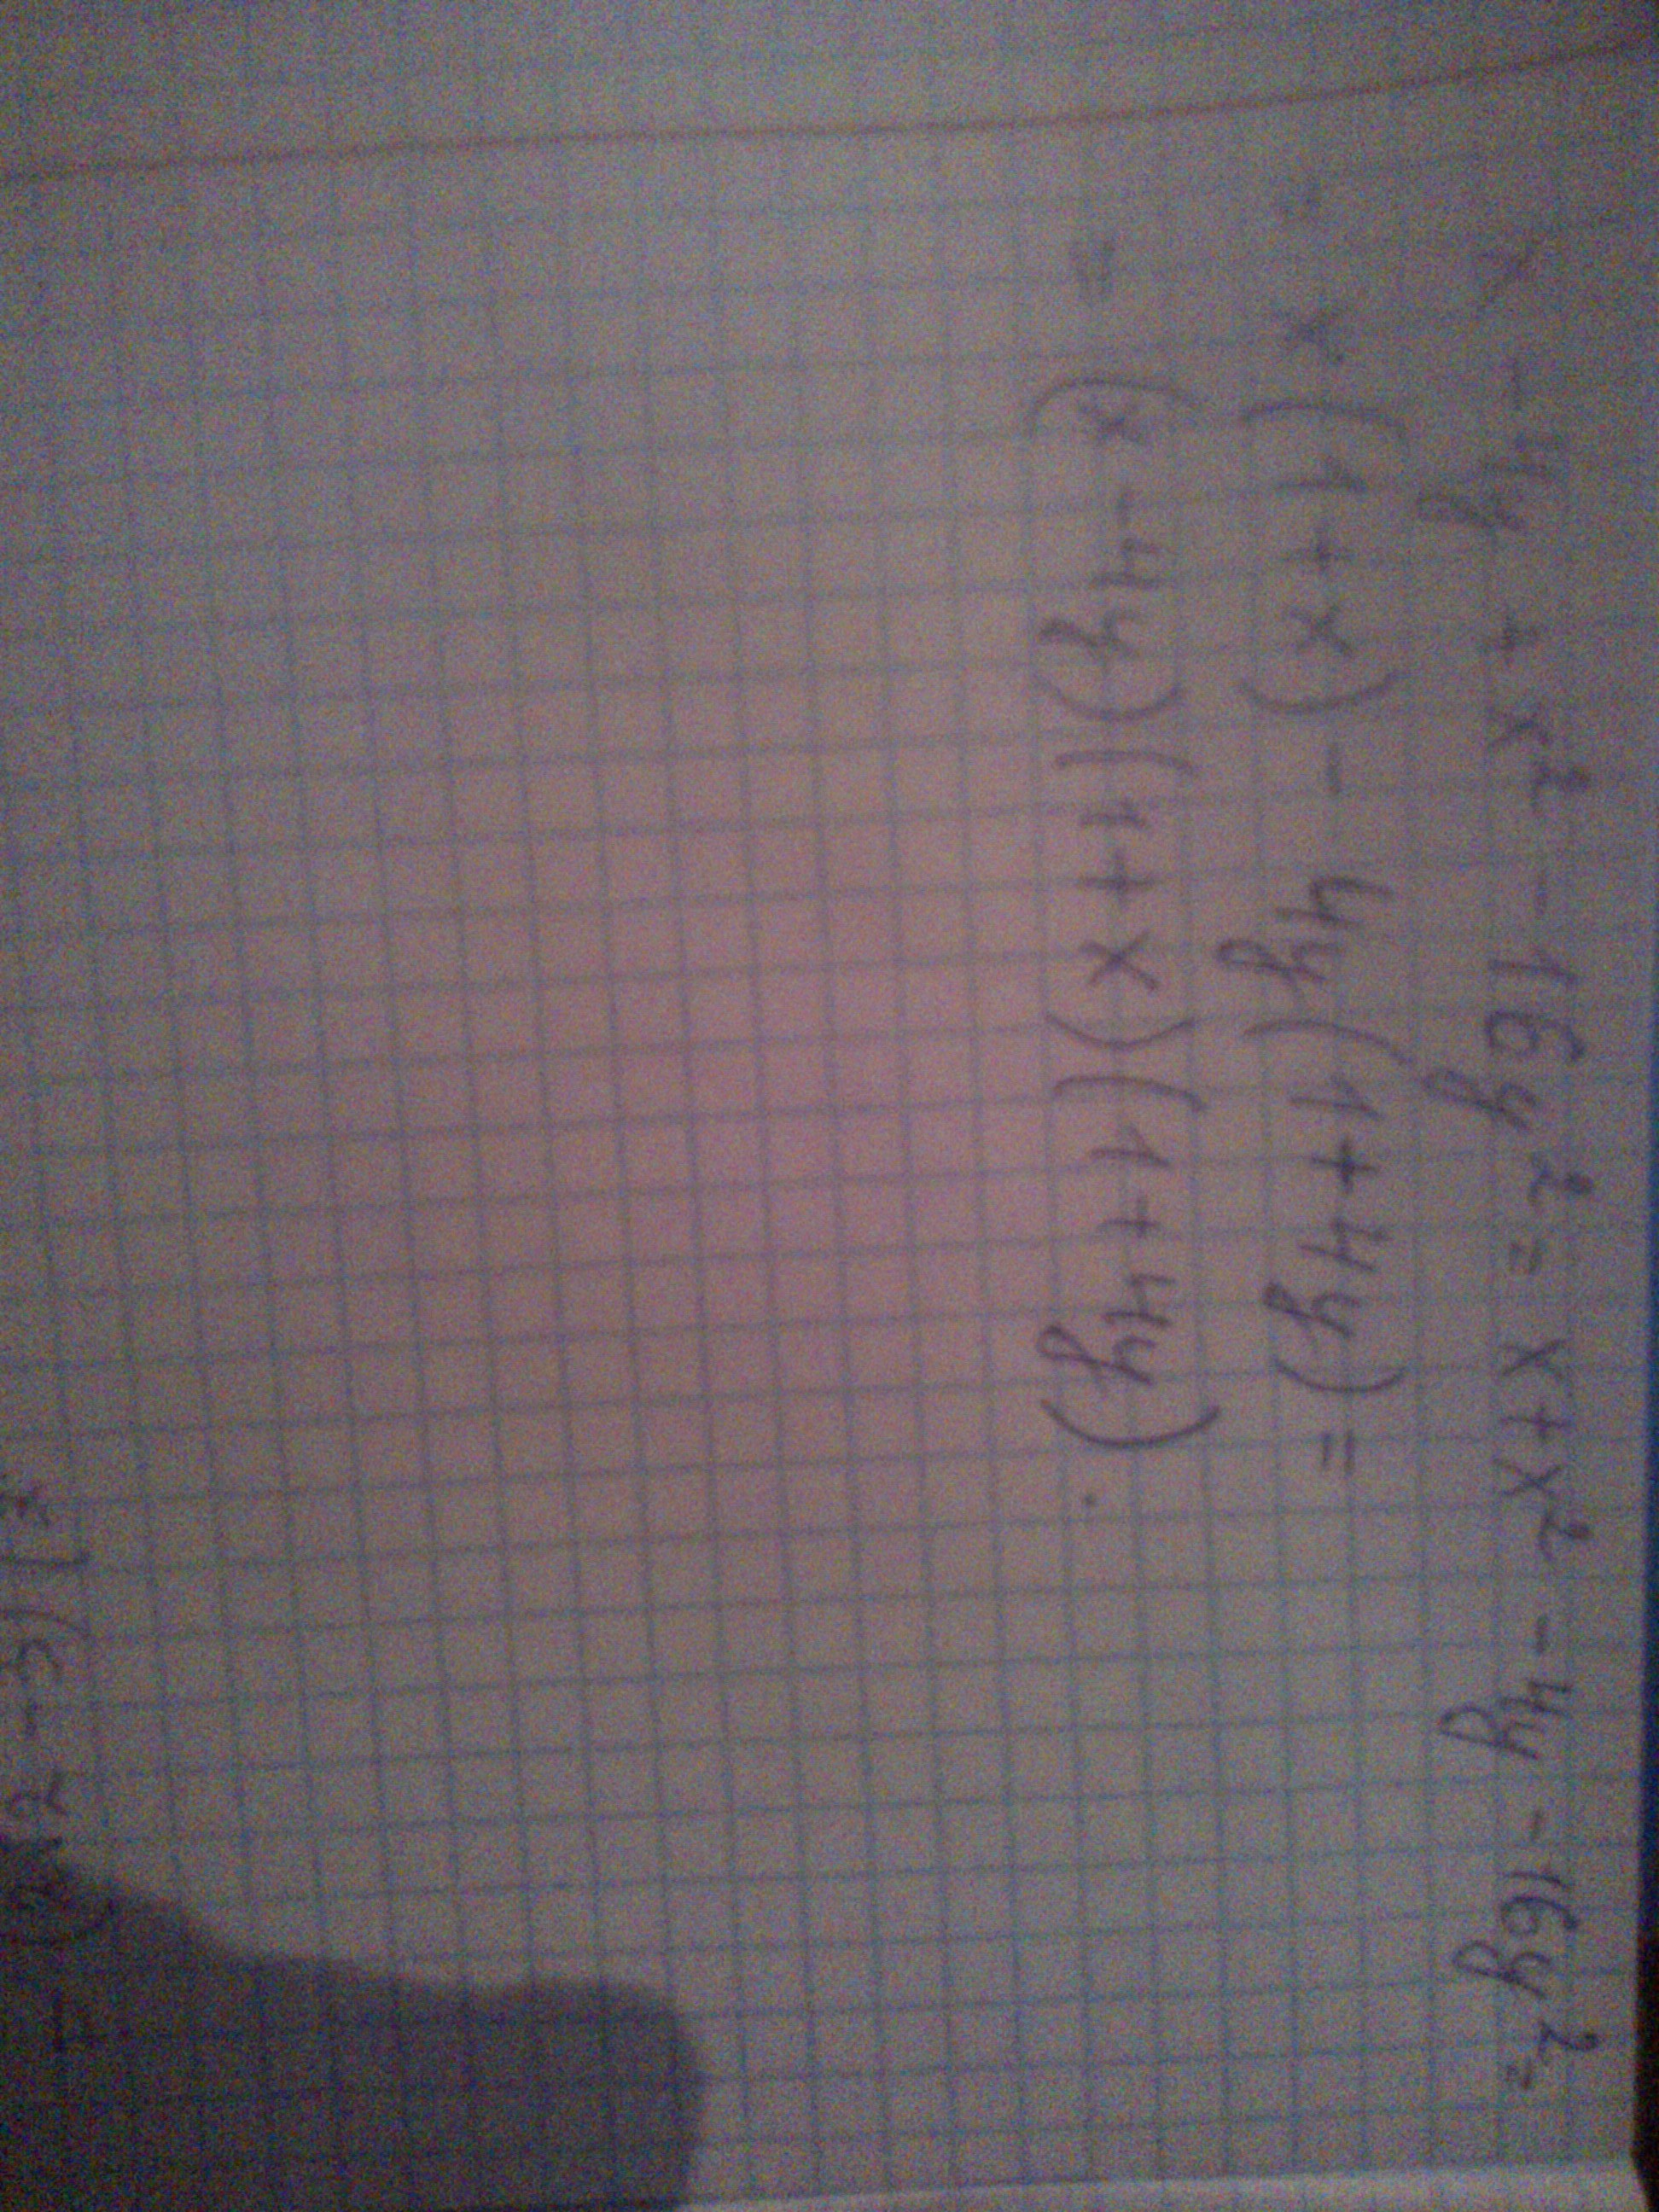 x - 4y + x² - 16y² = x + x² - 4y - 16y² =
= x(1+x) - 4y(1+4y) =
= (x - 4y)(1+x)(1+4y).